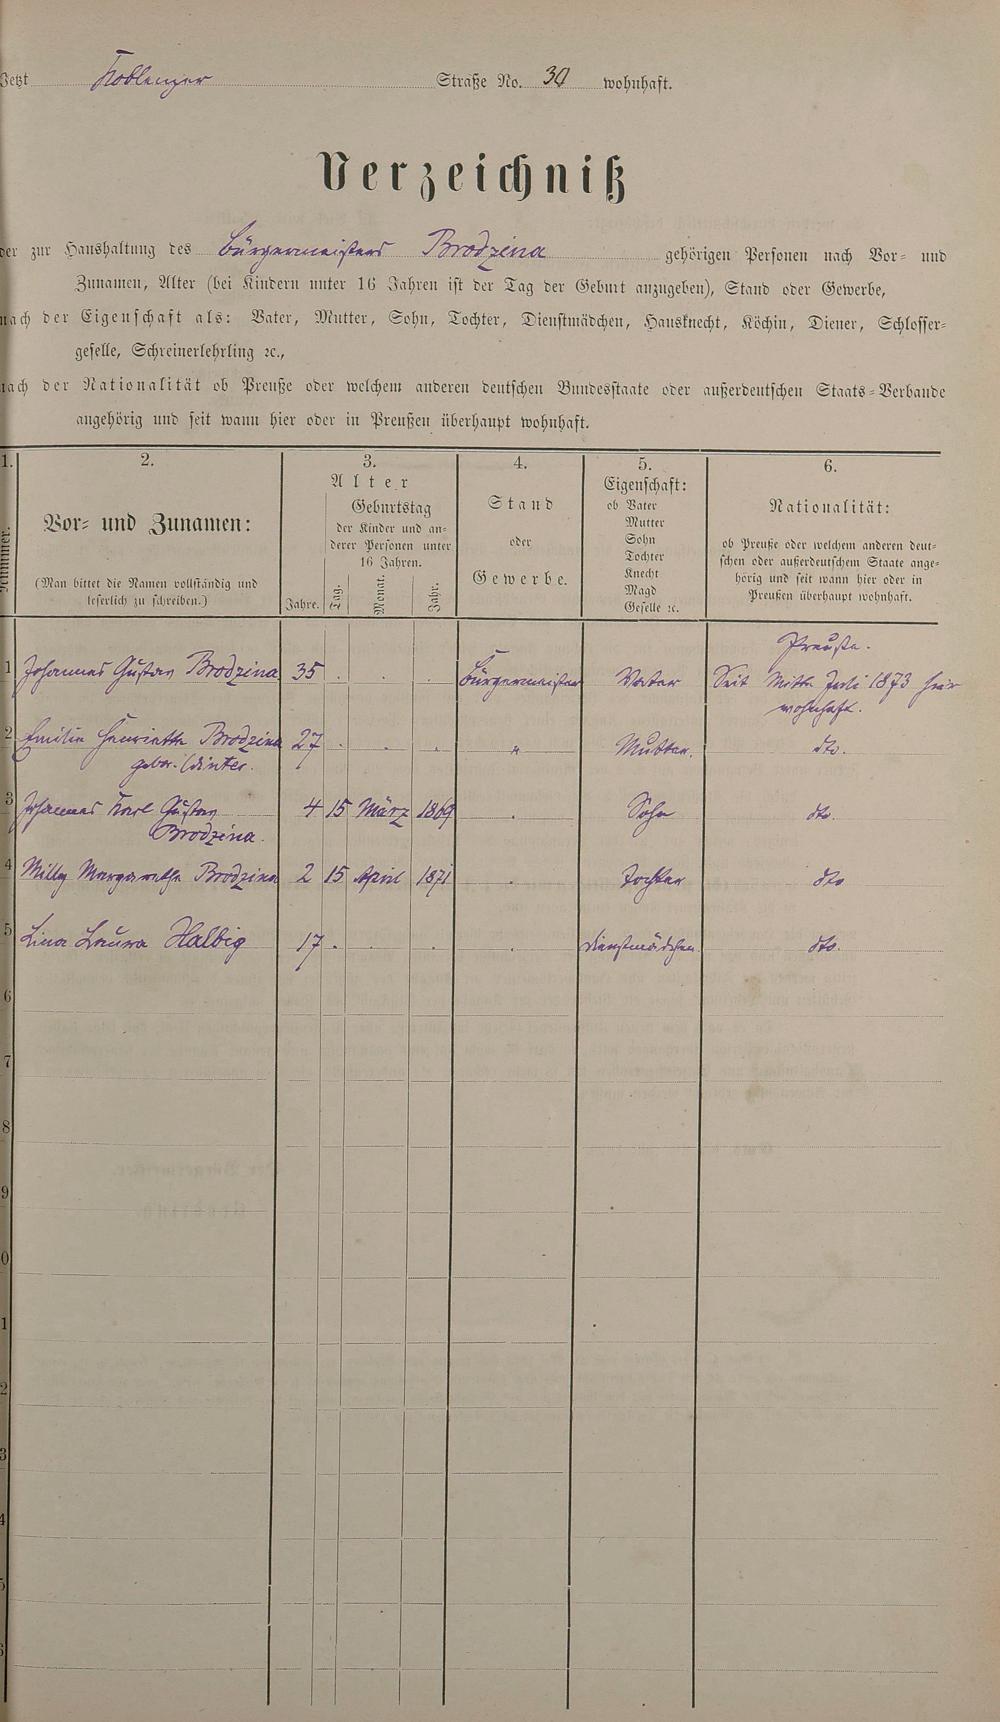 Jetzt Koblenzer Straße No. 30 wohnhaft.
Verzeichniß
der zur Haushaltung des Bürgermeisters Brodzina gehörigen Personen nach Vor- und
Zunamen, Alter (bei Kindern unter 16 Jahren ist der Tag der Geburt anzugeben), Stand oder Gewerbe,
nach der Eigenschaft als: Vater, Mutter, Sohn, Tochter, Dienstmädchen, Hausknecht, Köchin, Diener, Schlosser-
geselle, Schreinerlehrling ꝛc.,
nach der Nationalität ob Preuße oder welchem anderen deutschen Bundesstaate oder außerdeutschen Staats-Verbande
angehörig und seit wann hier oder in Preußen überhaupt wohnhaft.
1. 2. 3. 4. 5. 6.
Vor- und Zunamen:
(Man bittet die Namen vollständig und
leserlich zu schreiben.)
Alter
Jahre.
Geburtstag
der Kinder und an-
derer Personen unter
16 Jahren.
Tag. Monat. Jahr.
Stand
oder
Gewerbe.
Eigenschaft:
ob Vater
Mutter
Sohn
Tochter
Knecht
Magd
Geselle ꝛc.
Nationalität:
ob Preuße oder welchem anderen deut-
schen oder außerdeutschem Staate ange-
hörig und seit wann hier oder in
Preußen überhaupt wohnhaft.
Preuße.
1 Johannes Gustav Brodzina 35 . . . Bürgermeister Vater Seit Mitte Juli 1873 hier
wohnhaft.
2 Emilie Henriette Brodzina 27 . . . " Mutter. dto.
gebor. Winter.
3 Johannes Karl Gustav 4 15 März 1869 . Sohn dto.
Brodzina.
4 Milly Margarethe Brodzina 2 15 April 1871 . Tochter dto
5 Lina Laura Halbig 17 . . . . Dienstmädchen. dto.
6
7
8
9
0
1
2
3
4
5
6